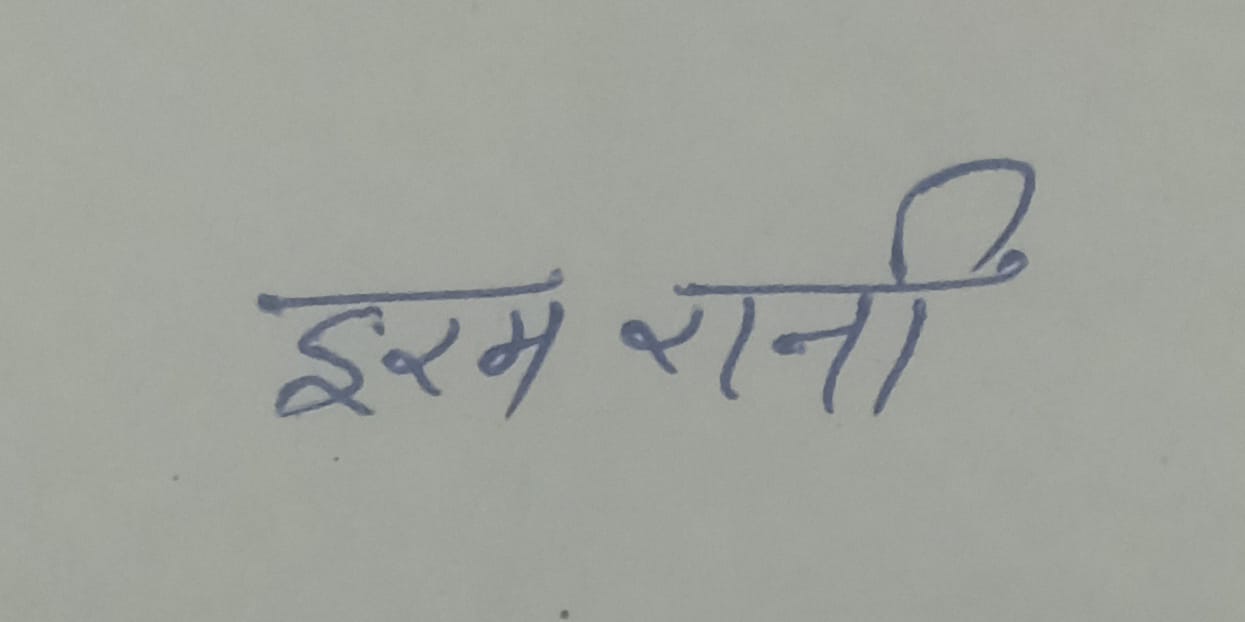 इरम रानी